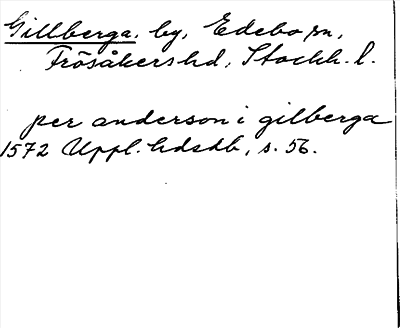 Gillberga, by, Edebo sn,
Frösåkers hd, Stockh. l.
per anderson i gilberga
1572 Uppl. hdsdb, s. 56.